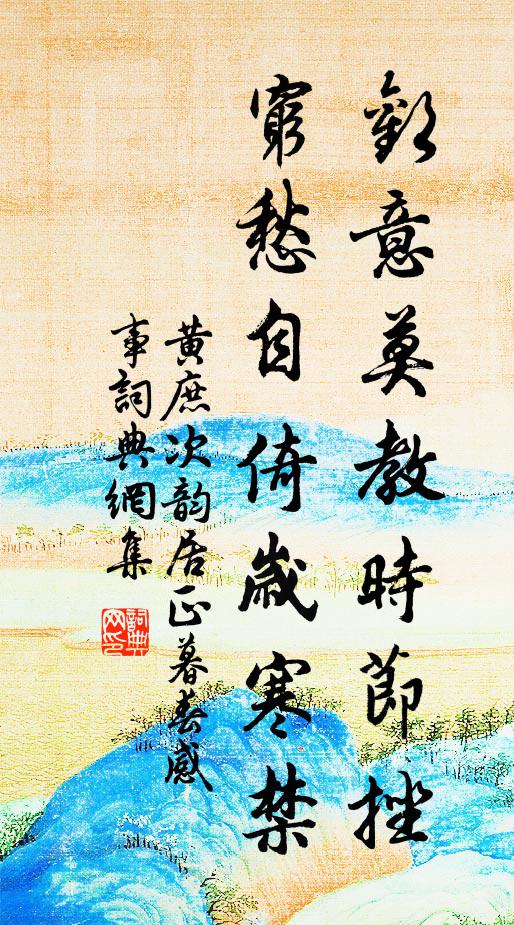 歡意莫教時節挫
窮愁自倚歲寒禁
黃庶次韵居正暮春感
事詞典網集